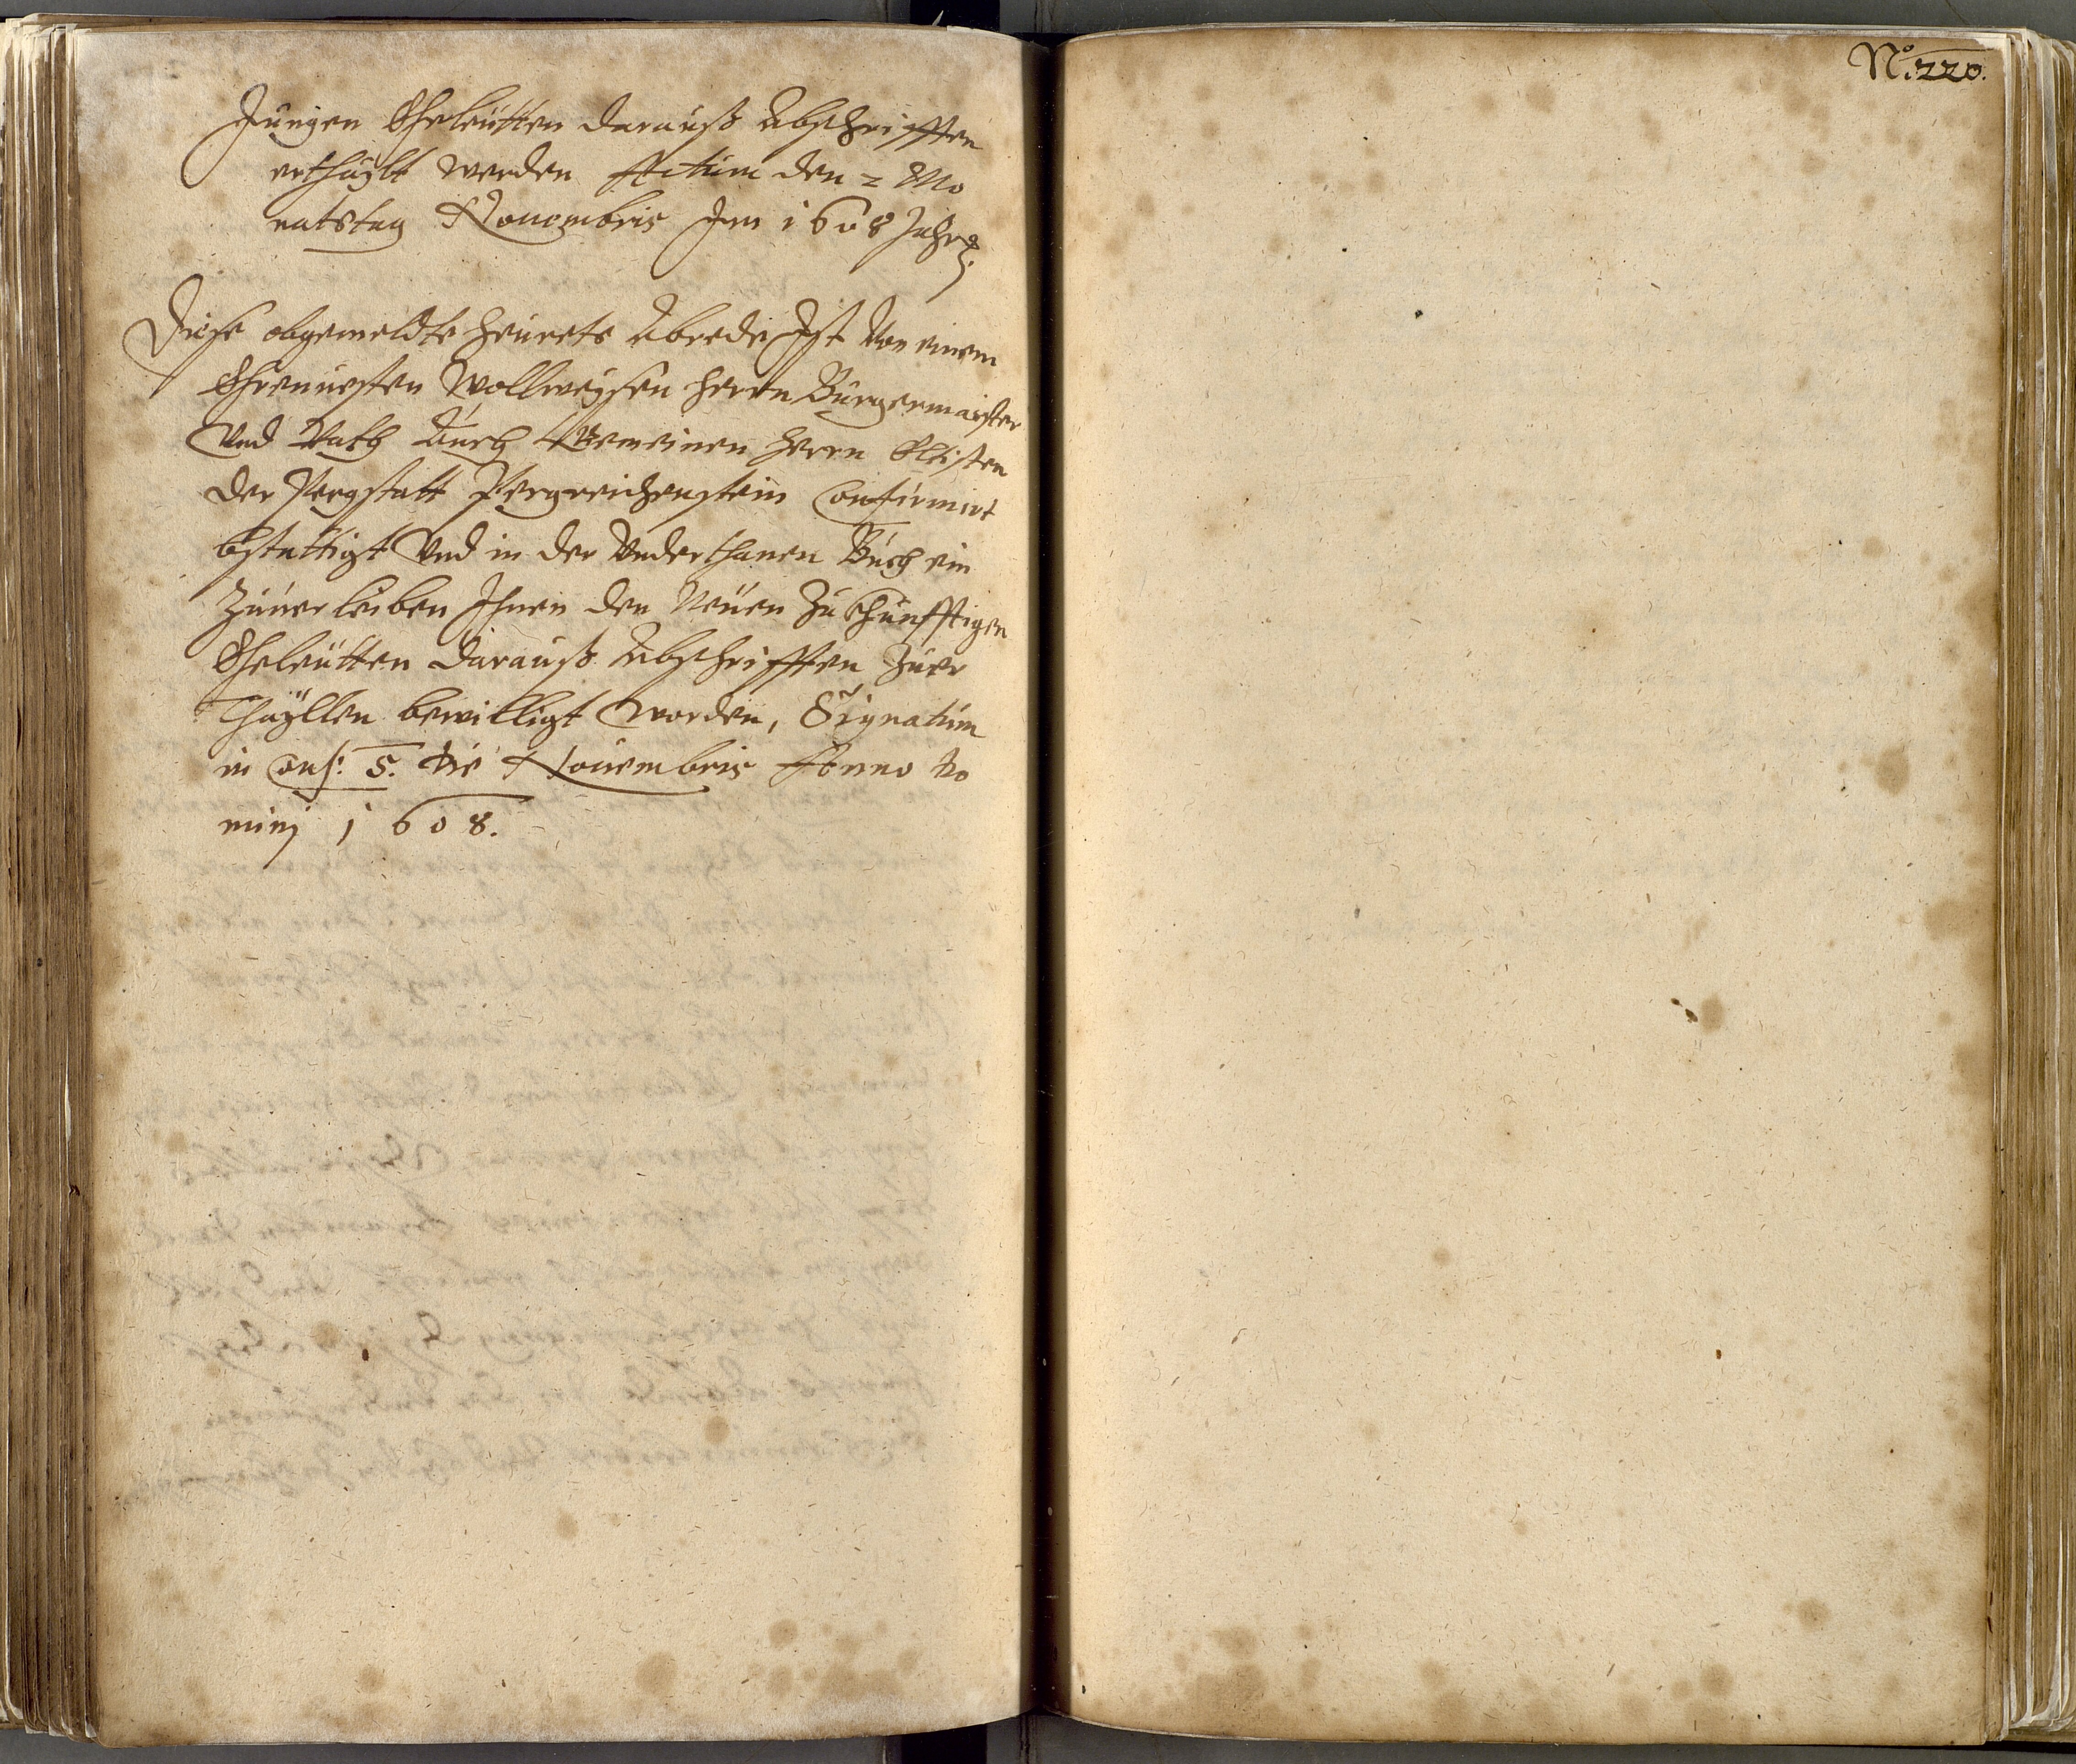 Jungen Eheleütten darauß Abschrifften
erthäylt werden Actum den 2 Mo
natstag Nouembris Im 1608 Jahr
Diese obgemeldte heürats Abrede Ist Von einem
Ehrnuesten Wollweysen herrn Bürgermaister
Vnd Rath Auch Gemeinen herrn Eltisten
der Pergstatt Pergreichenstein Confirmirt
bstattigt Vnd in der Vnderthanen Búch ein
Zúuerleiben Ihnen den Neüen Zúkhünfftigen
Eheleütten darauß Abschrifften Zúer
Thäyllen bewilligt worden, Signatúm
in Cons: 5. die Nouembris Anno do
minj 1608.
No. 220.